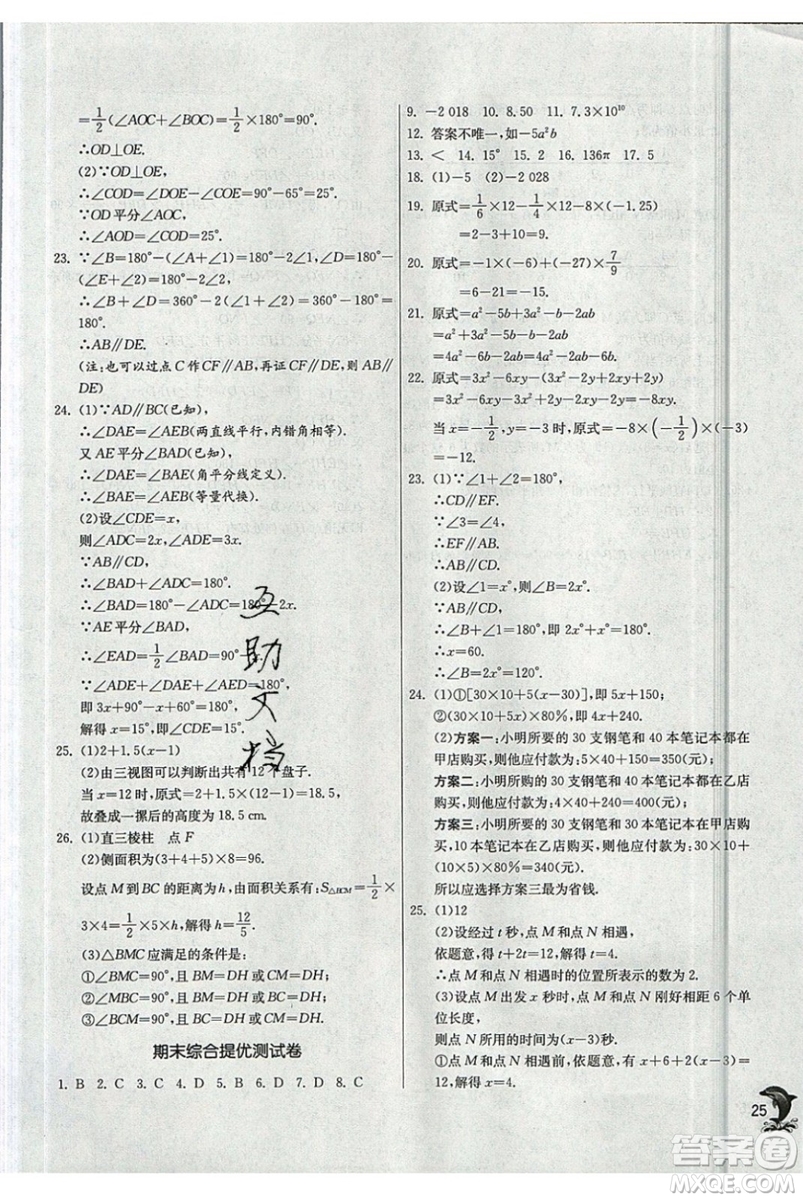 =1/2(∠AOC+∠BOC)=1/2×180°=90°.
∴OD⊥OE.
(2)∵OD⊥OE,
∴∠COD=∠DOE-∠COE=90°-65°=25°.
∵OD平分∠AOC,
∴∠AOD=∠COD=25°.
23. ∵∠B=180°-(∠A+∠1)=180°-2∠1,∠D=180°-
(∠E+∠2)=180°-2∠2,
∴∠B+∠D=360°-2(∠1+∠2)=360°-180°=
180°.
∴AB∥DE.
(注:也可以过点C作CF∥AB,再证CF∥DE,则AB∥
DE)
24. (1)∵AD∥BC(已知),
∴∠DAE=∠AEB(两直线平行,内错角相等).
又AE平分∠BAD(已知),
∴∠DAE=∠BAE(角平分线定义).
∴∠BAE=∠AEB(等量代换).
(2)设∠CDE=x,
则∠ADC=2x,∠ADE=3x.
∵AB∥CD,
∴∠BAD+∠ADC=180°.
∴∠BAD=180°-∠ADC=180°-2x.
∵AE平分∠BAD,
∴∠EAD=1/2∠BAD=90°-x.
∵∠ADE+∠DAE+∠AED=180°,
即3x+90°-x+60°=180°,
解得x=15°,即∠CDE=15°.
25. (1)2+1.5(x-1)
(2)由三视图可以判断出共有12个盘子.
当x=12时,原式=2+1.5×(12-1)=18.5,
故叠成一摞后的高度为18.5 cm.
26. (1)直三棱柱 点F
(2)侧面积为(3+4+5)×8=96.
设点M到BC的距离为h,由面积关系有:S△BCM=1/2×
3×4=1/2×5×h,解得h=12/5.
(3)△BMC应满足的条件是:
①∠BMC=90°,且BM=DH或CM=DH;
②∠MBC=90°,且BM=DH或BC=DH;
③∠BCM=90°,且BC=DH或CM=DH.
期末综合提优测试卷
1. B 2. C 3. D 4. C 5. D 6. C 7. D 8. C
9. -2 018 10. 8.50 11. 7.3×10¹⁰
12. 答案不唯一,如-5a²b
13. < 14. 15° 15. 2 16. 136π 17. 5
18. (1)-5 (2)-2 028
19. 原式=1/6×12-1/4×12-8×(-1.25)
=2-3+10=9.
20. 原式=-1×(-6)+(-27)×7/9
=6-21=-15.
21. 原式=a²+3a²-6b-2ab
=a²+3a²-6b-2ab
=4a²-6b-2ab
22. 原式=3x²-6xy-(3x²-2y+2xy+2y)
=3x²-6xy-3x²+2y-2xy-2y=-8xy.
当x=-1/2,y=-3时,原式=-8×(-1/2)×(-3)
=-12.
23. (1)∵∠1+∠2=180°,
∴CD∥EF.
∵∠3=∠4,
∴EF∥AB.
∴CD∥AB.
(2)设∠1=x°,则∠B=2x°.
∵AB∥CD,
∴∠B+∠1=180°,即2x°+x°=180°.
∴x=60.
∴∠B=2x°=120°.
24. (1)①[30×10+5(x-30)],即5x+150;
②(30×10+5x)×80%,即4x+240.
(2)方案一:小明所购的30支钢笔和40本笔记本都在
甲店购买,则他应付款为:5×40+150=350(元);
方案二:小明所购的30支钢笔和40本笔记本都在乙店
购买,则他应付款为:4×40+240=400(元);
方案三:小明所要购的30支钢笔和30本笔记本在甲店购
买,10本笔记本在乙店购买,则他应付款为:30×10+
(10×5)×80%=340(元).
所以应选择方案三最为省钱.
25. (1)12
(2)设经过t秒,点M和点N相遇,
依题意,得t+2t=12,解得t=4.
∴点M和点N相遇时的位置所表示的数为2.
(3)设点M出发x秒时,点M和点N刚好相距6个单
位长度,
则点N所用的时间为(x-3)秒.
①点M和点N相遇前,依题意,有x+2(x-3)+6=
12,解得x=4.
25
互
助
文
档
答案圈
MXQE.COM